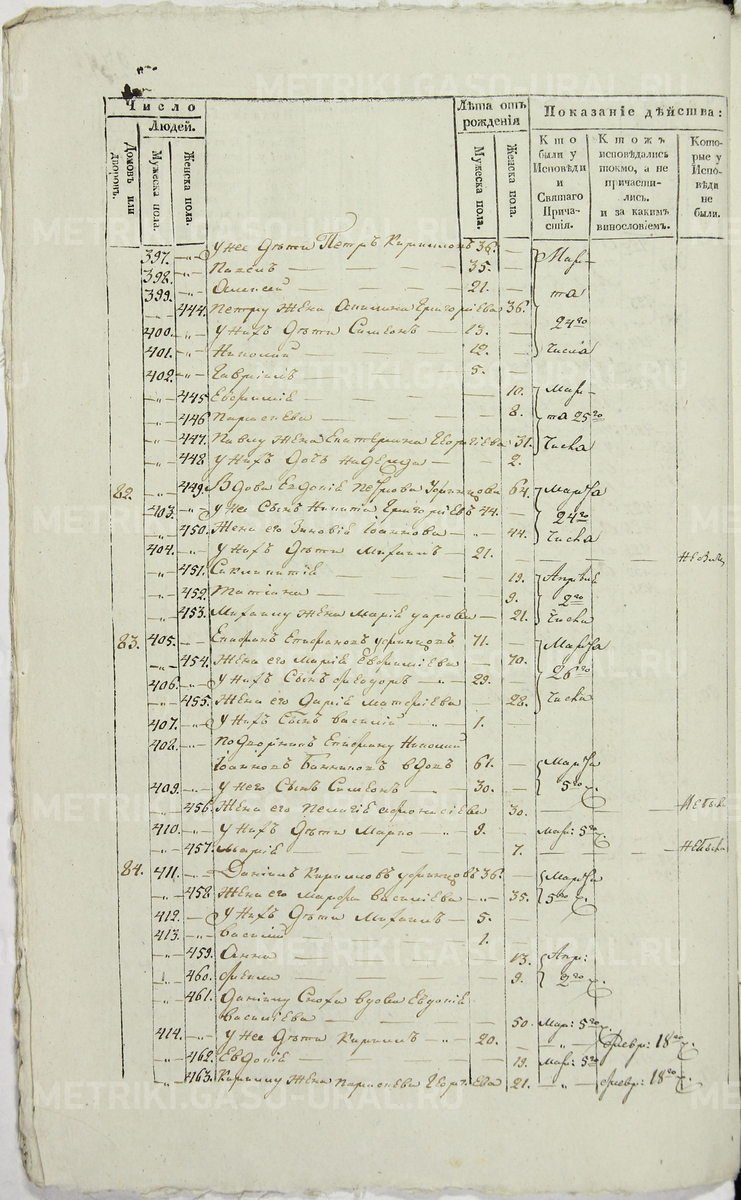 Число
Людей.
Домовъ или дворовъ.
Мужеска пола.
Женска пола.
Лѣта отъ рожденія
Мужеска пола.
Женска пола.
Показаніе дѣйства:
Кто были у Исповѣди и Святаго Причастія.
Ктожъ исповѣдались токмо, а не причастились. и за какимъ винословіемъ.
Которые у Исповѣди не были.
397. У нее дѣти Петръ Кирилловъ 36.
398. Павелъ 35.
399. Алексей 21.
444. Петру жена Григорiева 36.
400. У нихъ дѣти Симеонъ 13.
401. Николай 12.
402. Гавріилъ 5.
445 Евфимiѣ 10.
446 Парасковiа 8.
447. Павлу жена Екатерина Георгiева 31.
448 У нихъ дочь Надежда 2.
Мар-
та
24го
Числа
Мар-
та 25го
Числа
82. 449. Вдова Евдокiѣ Петрова 64. Марта
403. У нее сынъ Никита Григорiевъ 44. 24го
450. Жена его Зиновiѣ Iоаннова 44. Числа
404. У нихъ дѣти Михаилъ 21.
451. 19. Апрѣлѣ
452. Татiана 9. 2го
453. Михаилу жена Марiѣ 21. Числа
83. 405. Епифанъ Епифановъ 71. Марта
454. Жена его Марiѣ Евфимiева 70. 26го
406. У нихъ сынъ Феодоръ 29. Числа
455. Жена его Дарiѣ 28.
407. У нихъ сынъ Василiй 1.
408. Подворникъ Епифану Николай
Iоанновъ вдовъ 61. Марта
409. У него сынъ Симеонъ 30. 5го ч.
456. Жена его Пелагiѣ 30. Не была
410. У нихъ дѣти Марко 9. Мар: 5го ч.
457. Марiѣ 7. Не была
84. 411. Данiилъ Кирилловъ 36. Марта
458. Жена его Марфа Василiева 35. 5го ч.
412. У нихъ дѣти Михаилъ 5.
413. Василiй 1.
459. Анна 13. Апр:
460. Фекла 9. 2го ч.
461. Данiилу сноха вдова Евдокiѣ
Василiева 50. Мар: 5го ч.
414. У нее дѣти Кириллъ 20. Февр: 18го ч.
462. Евдокiѣ 19. Мар: 5го
463. Кириллу жена Парасковiа Георгiева 21. Февр: 18го ч.
METRIKI.GASO-URAL.RU